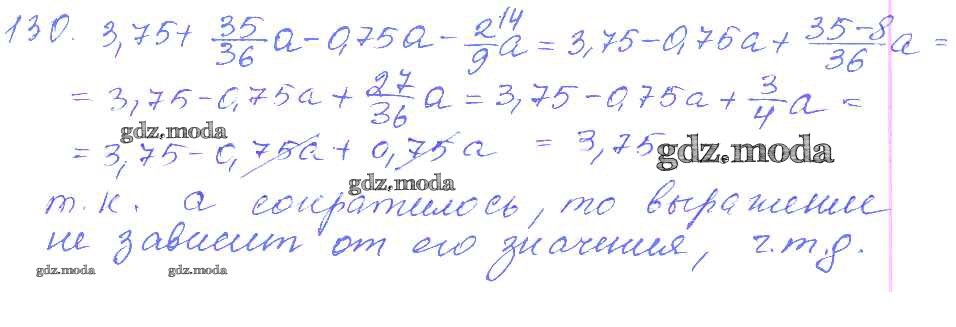 130. 3,75 + 35/36 a - 0,75a - 2\4/9 a = 3,75 - 0,75a + (35-8)/36 a =
= 3,75 - 0,75a + 27/36 a = 3,75 - 0,75a + 3/4 a =
gdz.moda
= 3,75 - 0,75a + 0,75a = 3,75
gdz.moda
gdz.moda
т.к. а сократилось, то выражение
не зависит от его значения, ч.т.д.
gdz.moda gdz.moda